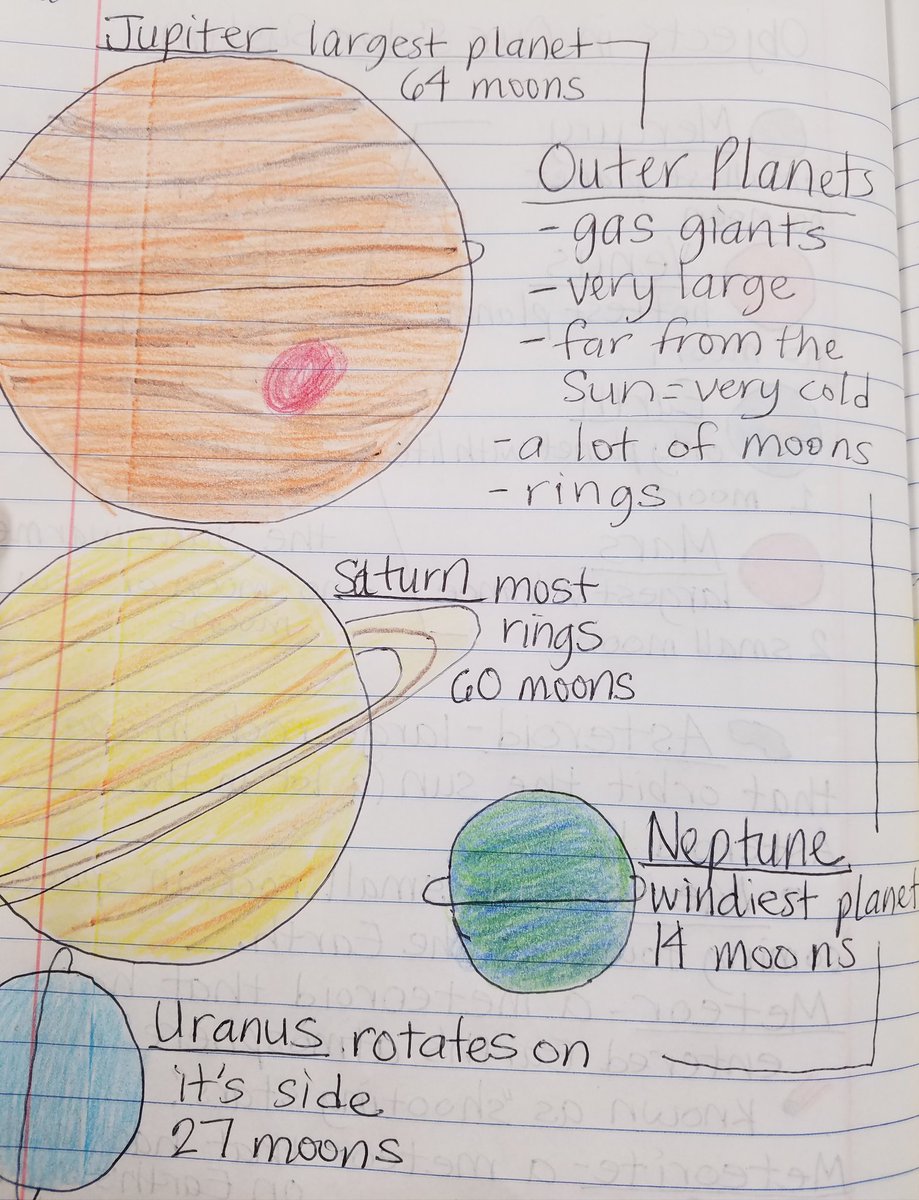 Jupiter largest planet
64 moons
Outer Planets
- gas giants
- very large
- far from the
Sun = very cold
- a lot of moons
- rings
Saturn most
rings
60 moons
Neptune
windiest planet
14 moons
Uranus rotates on
it's side
27 moons